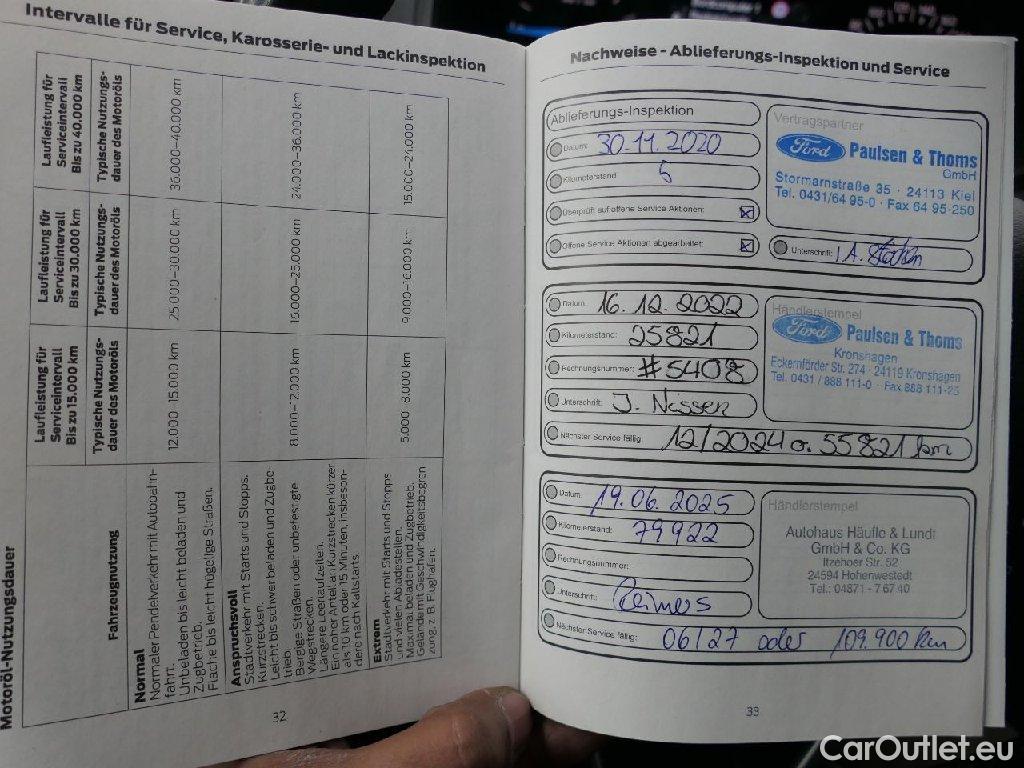 Intervalle für Service, Karosserie- und Lackinspektion
Motoröl-Nutzungsdauer
Fahrzeugnutzung
Laufleistung für Serviceintervall Bis zu 15.000 km
Laufleistung für Serviceintervall Bis zu 30.000 km
Laufleistung für Serviceintervall Bis zu 40.000 km
Typische Nutzungsdauer des Motoröls
Typische Nutzungsdauer des Motoröls
Typische Nutzungsdauer des Motoröls
Normal
Normaler Pendelverkehr mit Autobahnfahrt.
Unbeladen bis leicht beladen und Zugbetrieb.
Flache bis leicht hügelige Straßen.
12.000-15.000 km
25.000–30.000 km
36.000–40.000 km
Anspruchsvoll
Stadtverkehr mit Starts und Stopps.
Kurzstrecken.
Leicht bis schwer beladen und Zugbetrieb.
Bergige Straßen oder unbefestigte Wegstrecken.
Längere Leerlaufzeiten.
Ein hoher Anteil an Kurzstrecken kürzer als 10 km oder 15 Minuten, insbesondere nach Kaltstarts
24.000–36.000 km
Extrem
Stadtverkehr mit Starts und Stopps und vielen Abladestellen.
Maximal beladen und Zugbetrieb.
Gelände mit Geschwindigkeitsbegrenzung, z. B. Flughäfen.
5.000-8.000 km
32
Nachweise - Ablieferungs-Inspektion und Service
Ablieferungs-Inspektion
Datum: 30.11.2020
Kilometerstand 5
Überprüft auf offene Service Aktionen:
Offene Service Aktionen abgearbeitet:
Vertragspartner
Ford Paulsen & Thoms
GmbH
Stormarnstraße 35 · 24113 Kiel
Tel. 0431/64 95-0 · Fax 64 95-250
Unterschrift:
Datum: 16.12.2022
Kilometerstand: 25821
Rechnungsnummer: #5408
Unterschrift: J. Nessen
Nächster Service fällig: 12/2024 o. 55821 km
Händlerstempel
Ford Paulsen & Thoms
Kronshagen
Eckernförder Str. 274 · 24119 Kronshagen
Tel. 0431 / 888 111-0 · Fax 888 111-25
Datum: 19.06.2025
Kilometerstand: 79922
Rechnungsnummer:
Unterschrift: Reimers
Nächster Service fällig: 06/27 oder 109.900 km
Händlerstempel
Autohaus Häufle & Lundt
GmbH & Co. KG
Itzehoer Str. 52
24594 Hohenwestedt
Tel.: 04871 - 767 40
33
CarOutlet.eu